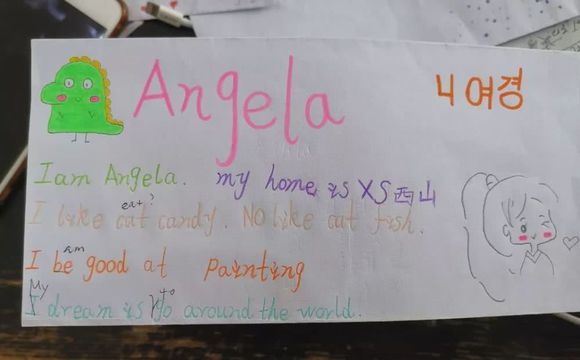 Angela
니여경
I am Angela. my home is XS西山
eat?
I like eat candy. NO like eat fish.
am
I be good at painting
My to
I dream is go around the world.